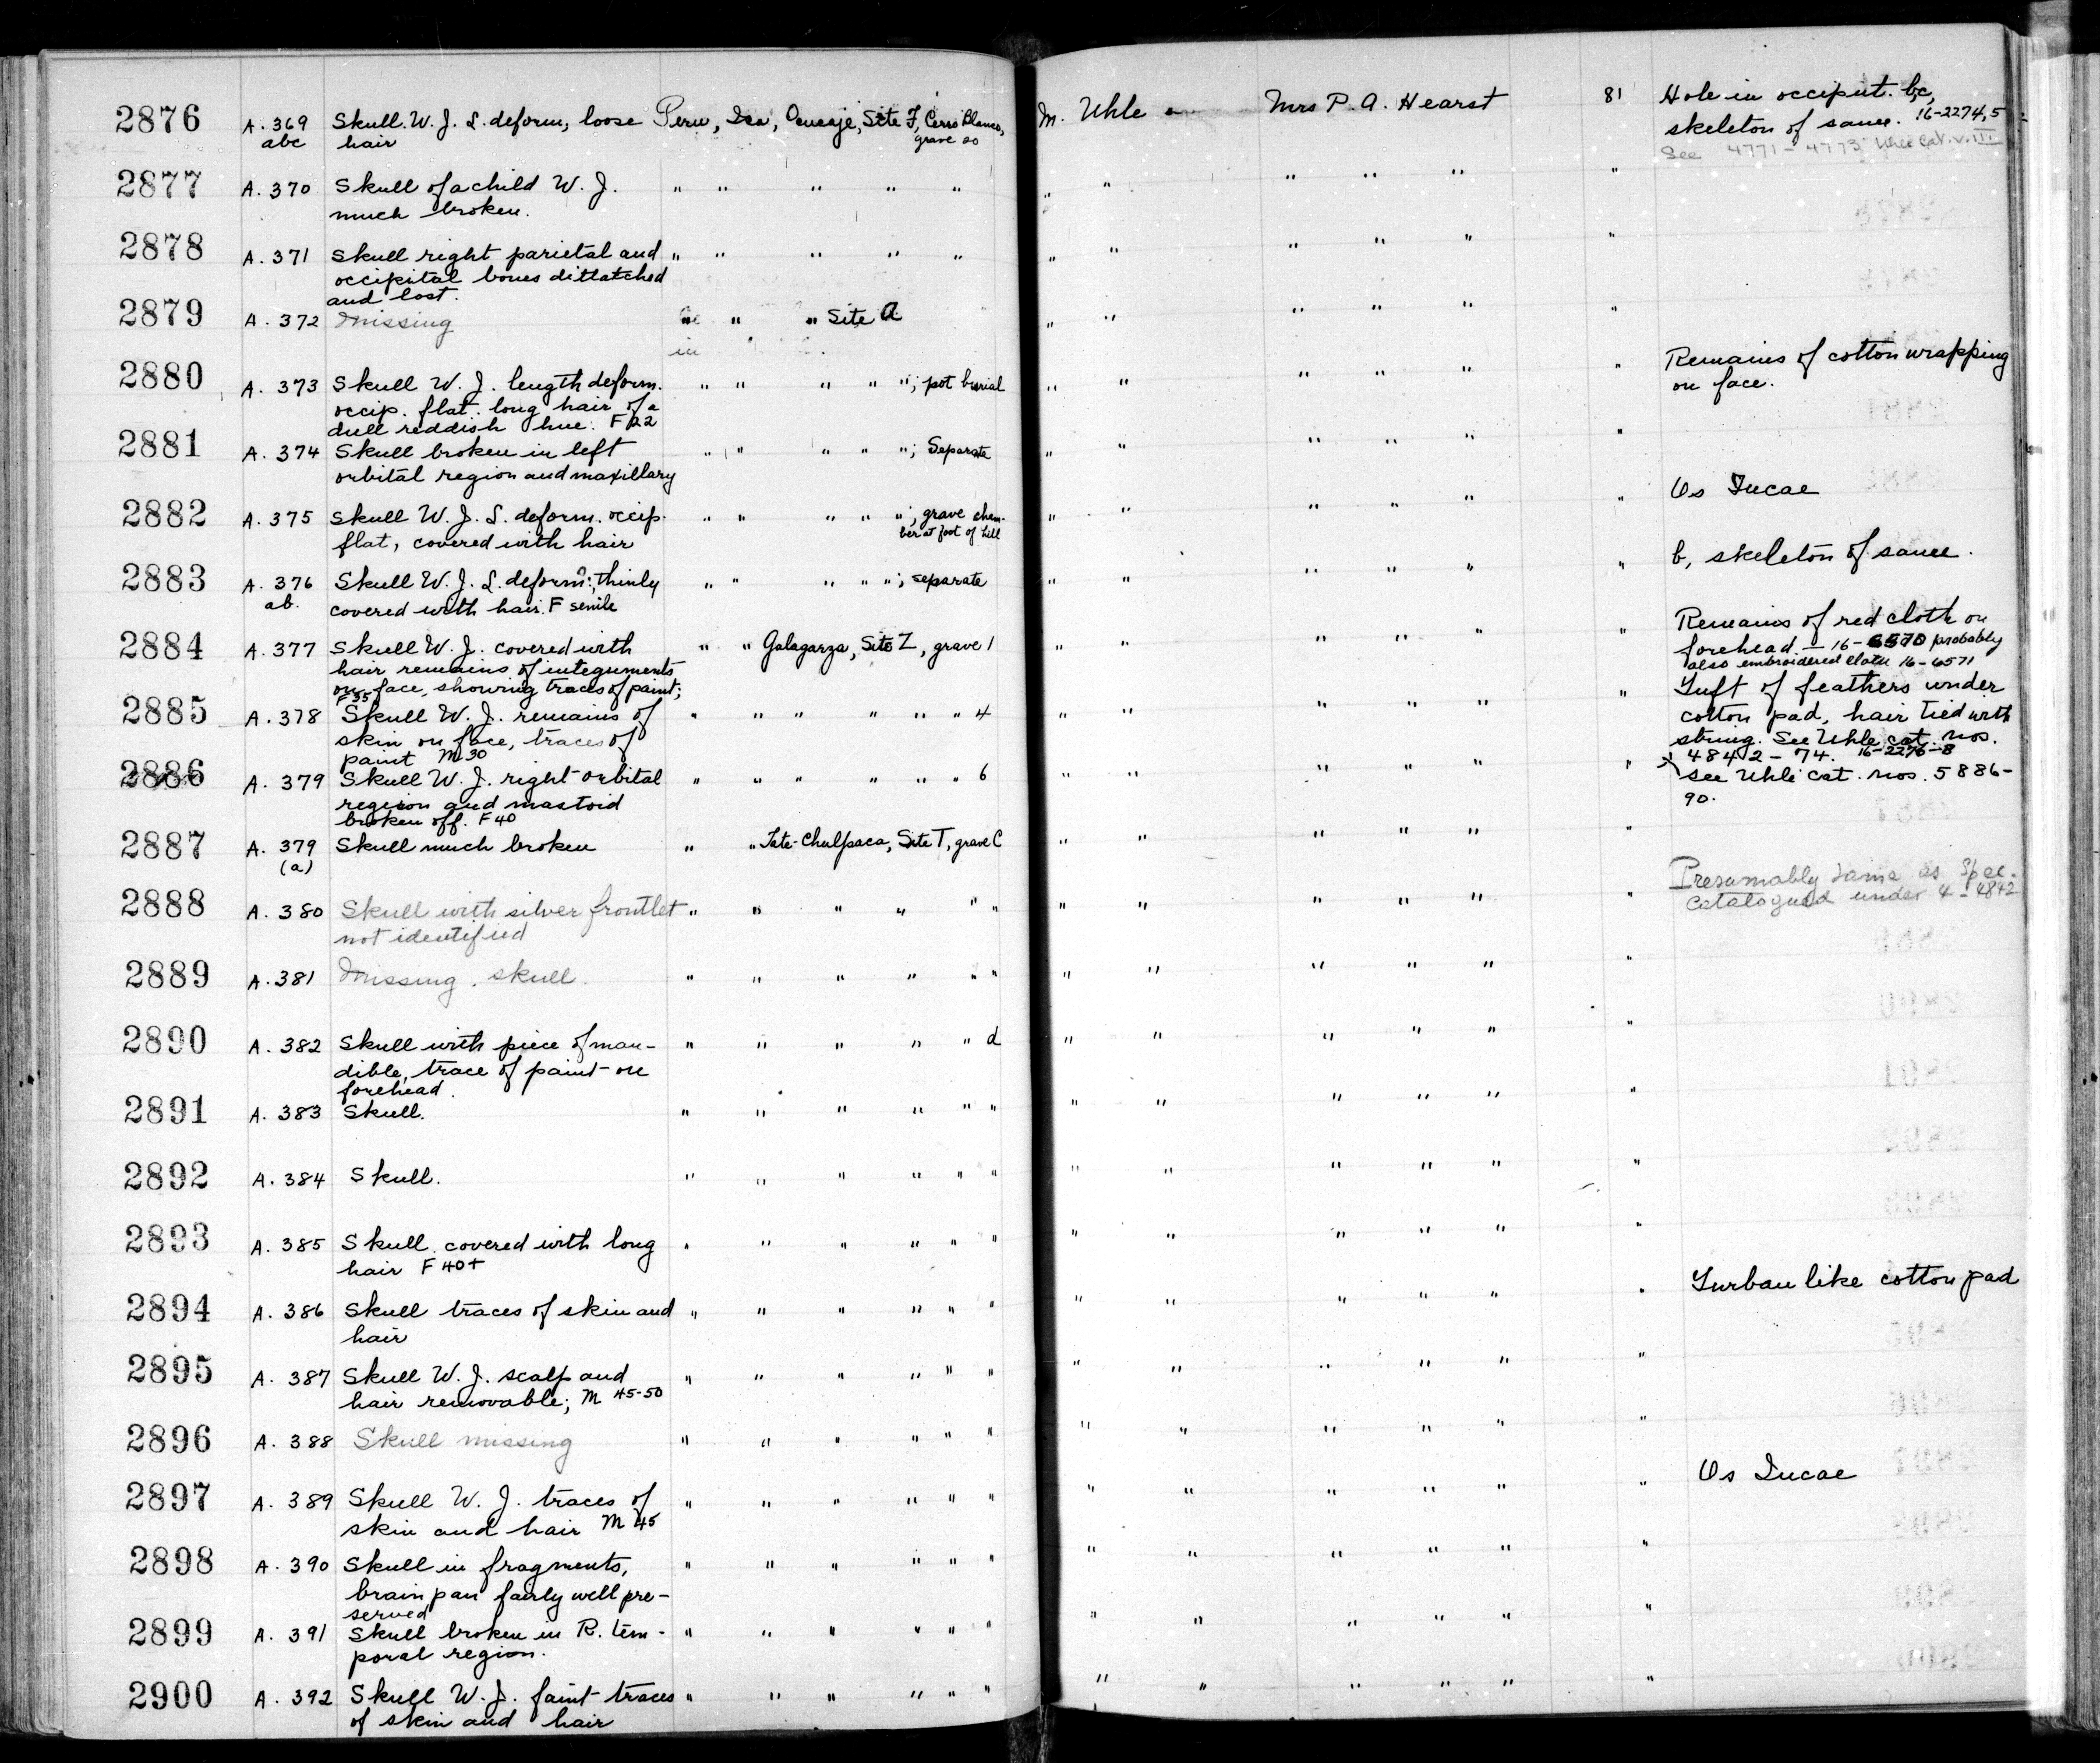 2876 A. 369 Skull. W. J. L. deform, loose Peru, Ica, Ocucaje, Site F, Cerro Blanco, M. Uhle Mrs P. A. Hearst 81 Hole in occiput. bc,
abc hair grave 20 skeleton of same. 16-2274,5
See 4771-4773 Uhle Cat. v. III
2877 A. 370 Skull of a child W. J. " " " " " " " " " " "
much broken.
2878 A. 371 Skull right parietal and " " " " " " " " " " "
occipital bones dittatched
and lost.
2879 A. 372 Missing " " " Site A " " " " " "
in
2880 A. 373 Skull W. J. length deform. " " " " "; pot burial " " " " " " Remains of cotton wrapping
occip. flat. long hair of a on face.
dull reddish hue. F 22
2881 A. 374 Skull broken in left " " " " "; Separate " " " " " "
orbital region and maxillary
2882 A. 375 Skull W. J. L. deform. occip. " " " " "; grave cham- " " " " " " Os Incae
flat, covered with hair ber at foot of hill
2883 A. 376 Skull W. J. L. deform?; thinly " " " " "; separate " " " " " " b, skeleton of same.
ab. covered with hair. F senile
2884 A. 377 Skull W. J. covered with " " Galagarza, Site Z, grave 1 " " " " " " Remains of red cloth on
hair remains of integuments forehead - 16-6570 probably
on face, showing traces of paint; also embroidered cloth 16-6571
F 35
2885 A. 378 Skull W. J. remains of " " " " " " 4 " " " " " " Tuft of feathers under
skin on face, traces of cotton pad, hair tied with
paint M 30 string. See Uhle cat. nos.
4842-74. 16-2276-8
2886 A. 379 Skull W. J. right orbital " " " " " " 6 " " " " " " see Uhle cat. nos. 5886-
region and mastoid 90.
broken off. F 40
2887 A. 379 Skull much broken " " Tate-Chulpaca, Site T, grave C " " " " " "
(a)
2888 A. 380 Skull with silver frontlet " " " " " " " " " " " " Presumably same as spec.
not identified catalogued under 4-4842
2889 A. 381 Missing. skull. " " " " " " " " " " " "
2890 A. 382 Skull with piece of man- " " " " " d " " " " " "
dible, trace of paint on
forehead.
2891 A. 383 Skull. " " " " " " " " " " " "
2892 A. 384 Skull. " " " " " " " " " " " "
2893 A. 385 Skull covered with long " " " " " " " " " " " "
hair F 40+
2894 A. 386 Skull traces of skin and " " " " " " " " " " " " Turban like cotton pad
hair
2895 A. 387 Skull W. J. scalp and " " " " " " " " " " " "
hair removable; M 45-50
2896 A. 388 Skull missing " " " " " " " " " " " "
2897 A. 389 Skull W. J. traces of " " " " " " " " " " " " Os Incae
skin and hair M 45
2898 A. 390 Skull in fragments, " " " " " " " " " " " "
brain pan fairly well pre-
served
2899 A. 391 Skull broken in R. tem- " " " " " " " " " " " "
poral region.
2900 A. 392 Skull W. J. faint traces " " " " " " " " " " " "
of skin and hair